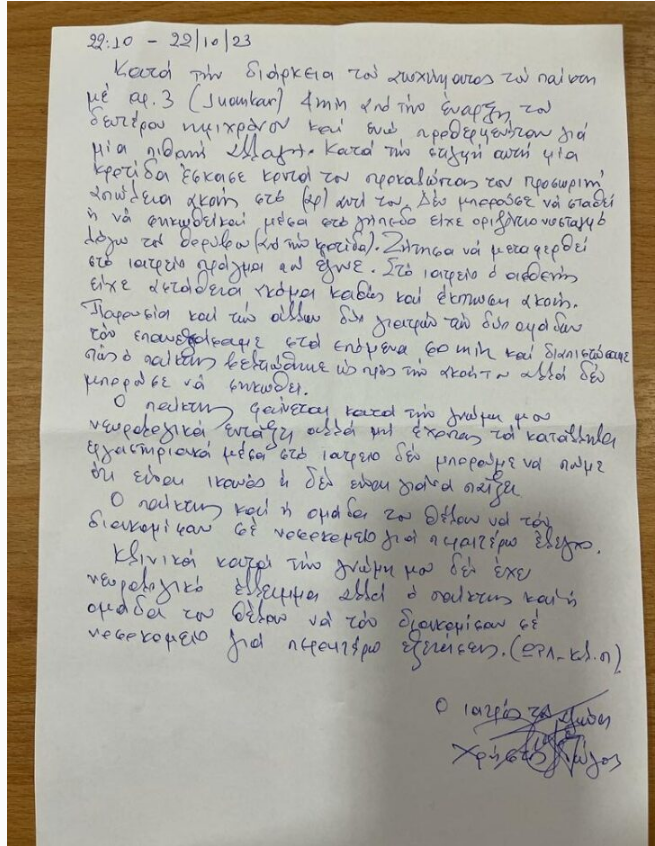 22:10 - 22/10/23
Κατά την διάρκεια του ατυχήματος του παίκτη
μέ αρ. 3 (Juankar) 4min από την έναρξη του
δευτέρου ημιχρόνου καί ενώ προθερμαίνονταν γιά
μία πιθανή αλλαγή. Κατά την στιγμή αυτή μία
κροτίδα έσκασε κοντά του προκαλώντας του προσωρινή
απώλεια ακοής στό (αρ) αυτί του. Δέν μπορούσε νά σταθεί
ή νά σηκωθεί καί μέσα στό γήπεδο είχε οριζόντιο νυσταγμό
λόγω του θορύβου (από την κροτίδα). Ζήτησα νά μεταφερθεί
στό ιατρείο πράγμα που έγινε. Στό ιατρείο ό ασθενής
είχε αστάθεια ακόμαι καθώς καί έκπτωση ακοής.
Παρουσία καί των άλλων δύο γιατρών των δύο ομάδων
τόν επανεξετάσαμε στά επόμενα 50 min καί διαπιστώσαμε
πώς ό παίκτης βελτιώθηκε ώς πρός την ακοή του αλλά δέν
μπορούσε νά σηκωθεί.
Ο παίκτης φαίνεται κατά την γνώμη μου
νευρολογικά εντάξη αλλά μή έχοντας τά κατάλληλα
εργαστηριακά μέσα στό ιατρείο δέν μπορούμε νά πούμε
ότι είναι ικανός ή δέν είναι γιά νά παίξει
Ο παίκτης καί ή ομάδα του θέλουν νά τόν
διακομίσουν σέ νοσοκομείο γιά περαιτέρω έλεγχο.
Κλινικά κατά την γνώμη μου δέν έχει
νευρολογικό έλλειμμα αλλά ό παίκτης καί ή
ομάδα του θέλουν νά τόν διακομίσουν σέ
νοσοκομείο γιά περαιτέρω εξετάσεις. (ΩΡΛ-κλ.π)
Ο ιατρός του αγώνα
Χρήστος